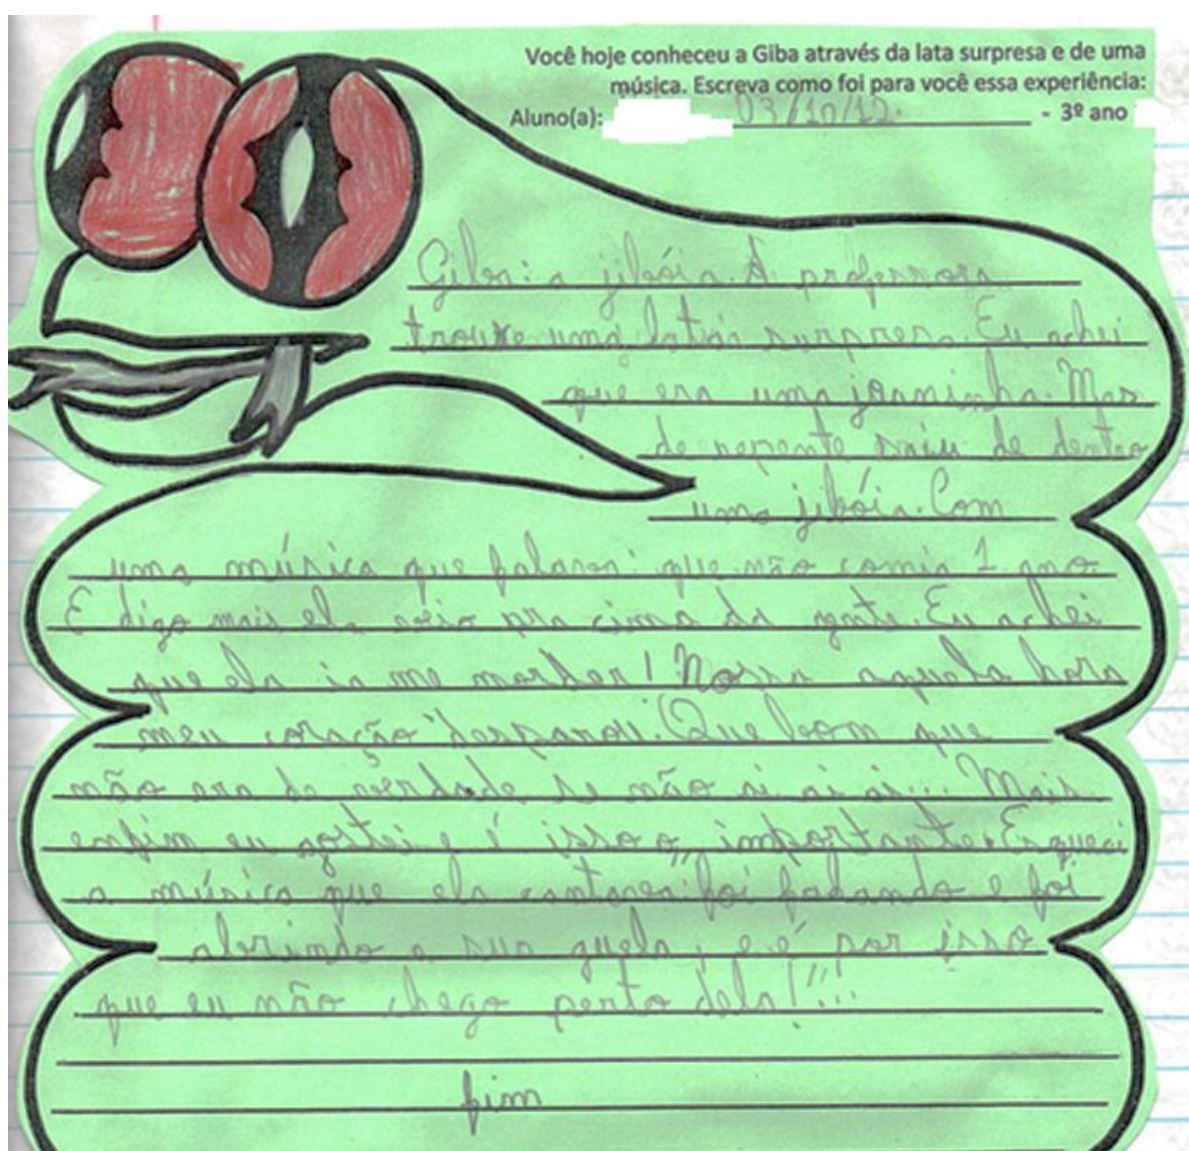 Você hoje conheceu a Giba através da lata surpresa e de uma
música. Escreva como foi para você essa experiência:
Aluno(a): 03/10/12. - 3º ano
Giba: a jibóia. A professora
trouxe uma lata surpresa. Eu achei
que era uma joaninha. Mas
de repente saiu de dentro
uma jibóia. Com
uma música que falava: que não comia 1 ano
E digo mais ela veio pra cima da gente. Eu achei
que ela ia me morder! Nossa aquela hora
meu coração desparou. Que bom que
não era de verdade se não ai ai ai... Mais
enfim eu gostei e é isso o importante. Esqueci
a música que ela cantava: foi falando e foi
abrindo a sua guela, e é por isso
que eu não chego perto dela!!!
fim